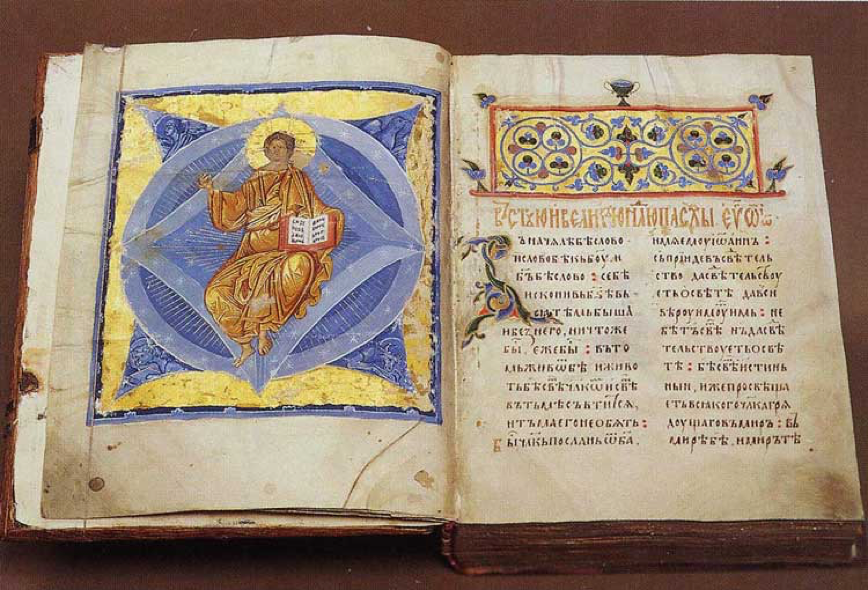 В СТ҃УЮ И ВЕЛИКУЮ Н҃ЛЮ ПАСХЫ ЕУ҃ Ѿ
Въ начѧлѣ бѣ слово
и слово бѣ къ б҃у. и
б҃ъ бѣ слово : се бѣ
искони къ б҃у
вьсѧ тѣмь быша
и без него, ничтоже
бы, еже бы : въ то
мь живѡ бѣ и живо
тъ бѣ свѣ чл҃комъ и свѣ
въ тьмѣ свьтитсѧ,
и тьма его не обѧтъ :
бы чл҃къ посланъ ѿ б҃а,
имѧ ѥмоу їѡаннъ :
сь приидѣ въ свѣтель
ство да свѣтельствоу
еть о свѣтѣ да вси
вѣроу имоуть имь : не
бѣ тъ свѣ нъ да свѣ
тельствоуеть о свѣ
тѣ : бѣ свѣ истинь
ныи, иже просвѣща
еть всѧкого чл҃ка грѧ
доущаго въ миръ : въ
мирѣ бѣ, и миръ тѣ